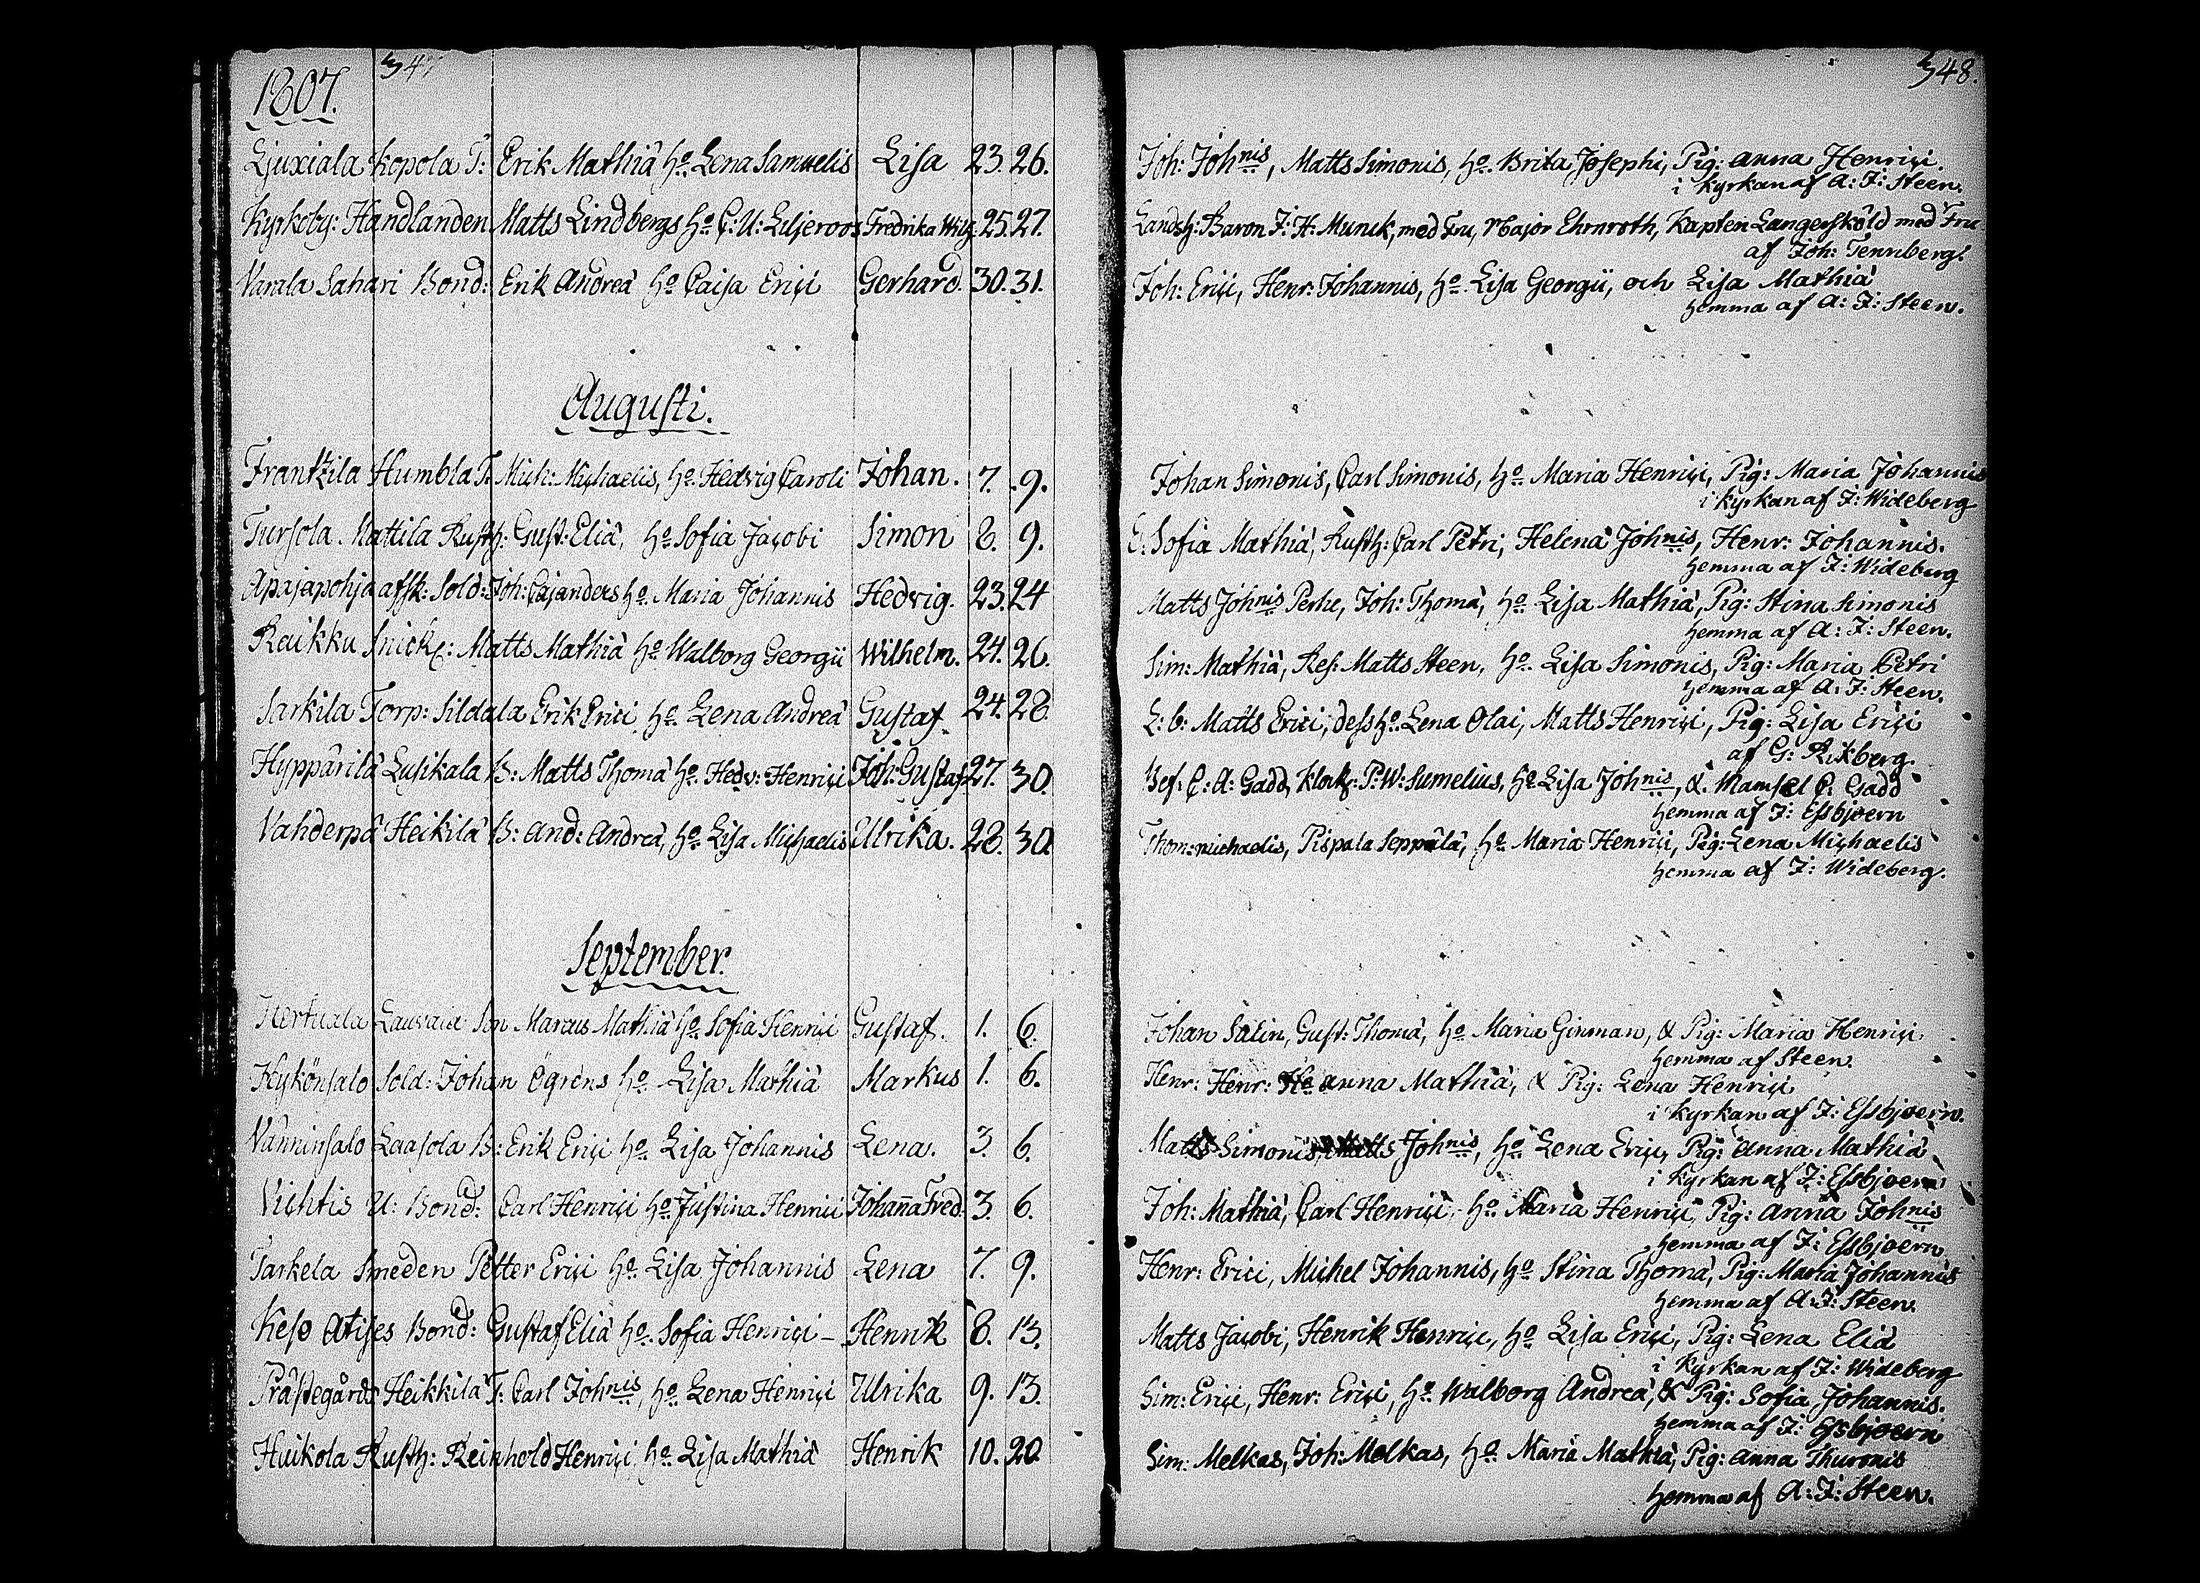 1807. 347
Ljuxiala Kopola T: Erik Mathiæ Ho. Lena Samuelis Lisa 23. 26.
Kyrkeby: Handlanden Matts Lindbergs Ho C: U: Liljeroos Fredrika Wilh: 25. 27.
Varala Sahari Bond: Erik Andreæ Ho Caisa Erici Gerhard. 30. 31.
Augusti.
Frantzila Humbla T. Mich: Michaelis, Ho. Hedvig Caroli Johan. 7. 9.
Tursola Mattila Rusth: Gust: Eliæ, Ho Sofia Jacobi Simon 8. 9.
Apajapohja afsk: Sold: Joh: Cajanders Ho. Maria Johannis Hedvig. 23. 24
Raikku Snick: Matts Mathiæ Ho Walborg Georgii Wilhelm. 24. 26.
Sarkila Torp: Sildala Erik Erici, Ho. Lena Andreæ Gustaf 24. 28
Hyppärilä Lusikala B: Matts Thomæ Ho. Hedv: Henrici Joh: Gustaf 27. 30.
Vahderpä Heikilä B: And: Andreæ, Ho. Lisa Michaelis Ulrika. 28. 30
September.
Hertuala Son Marcus Mathiæ Ho. Sofia Henrici Gustaf. 1. 6.
Hykönsalo Sold: Johan Ögrens Ho. Lisa Mathiæ Markus 1. 6.
Vänninsalo Laasola B: Erik Erici Ho. Lisa Johannis Lena. 3. 6.
Vichtis U: Bond: Carl Henrici Ho. Justina Henrici Johanna Fred: 3. 6.
Tarkela Smeden Petter Erici Ho. Lisa Johannis Lena 7. 9.
Keso Atises Bond: Gustaf Eliæ Ho. Sofia Henrici – Henrik 8. 13.
Prästegårds Heikkilä T: Carl Johnis, Ho. Lena Henrici Ulrika 9. 13.
Huikola Rusth: Reinhold Henrici Ho. Lisa Mathiæ Henrik 10. 20.
348.
Joh: Johnis, Matts Simonis, Ho. Brita Josephi, Pig: Anna Henrici
i kyrkan af A: J: Steen.
Landsh: Baron J: H: Munck, med Fru, Major Ehrnroth, Kapten Langerskiöld med Fru
af Joh: Tennberg.
Joh: Erici, Henr: Johannis, Ho. Lisa Georgii, och Lisa Mathiæ
hemma af A: J: Steen.
Johan Simonis, Carl Simonis, Ho Maria Henrici, Pig: Maria Johannis
i kyrkan af J: Wideberg
E: Sofia Mathiæ, Rusth: Carl Petri, Helena Johnis, Henr: Johannis.
hemma af J: Wideberg
Matts Johnis Perhe, Joh: Thomæ, Ho. Lisa Mathiæ, Pig: Stina Simonis
hemma af A: J: Steen.
Sim: Mathiæ, Res: Matts Steen, Ho. Lisa Simonis, Pig: Maria Petri
hemma af A: J: Steen.
L: b: Matts Erici, dess Ho. Lena Olai, Matts Henrici, Pig: Lisa Erici
af G: Rikberg.
Bef: C: A: Gadd, Klock: P: W: Sumelius, Ho Lisa Johnis, & Mamsel C: Gadd
hemma af J: Essbjoern
Thom: michaelis, Pispala Seppälä, Ho. Maria Henrici, Pig: Lena Michaelis
hemma af J: Wideberg.
Johan Salin, Gust: Thomæ, Ho. Maria Ginman, & Pig: Maria Henrici
hemma af Steen.
Henr: Henr: Ho anna Mathiæ, & Pig: Lena Henrici
i kyrkan af J: Essbjoern.
Matts Simonis, Matts Johnis, Ho Lena Erici, Pig: Anna Mathiæ
i kyrkan af J: Essbjoern
Joh: Mathiæ, Carl Henrici, Ho. Maria Henrici, Pig: Anna Johnis
hemma af J: Essbjoern
Henr: Erici, Michel Johannis, Ho Stina Thomæ, Pig: Maria Johannis
hemma af A: J: Steen.
Matts Jacobi, Henrik Henrici, Ho Lisa Erici, Pig: Lena Eliæ
i kyrkan af J: Wideberg
Sim: Erici, Henr: Erici, Ho. Walborg Andreæ, & Pig: Sofia Johannis.
hemma af J: Essbjoern
Sim: Melkas, Joh: Melkas, Ho. Maria Mathiæ, Pig: Anna Thuronis
hemma af A: J: Steen.